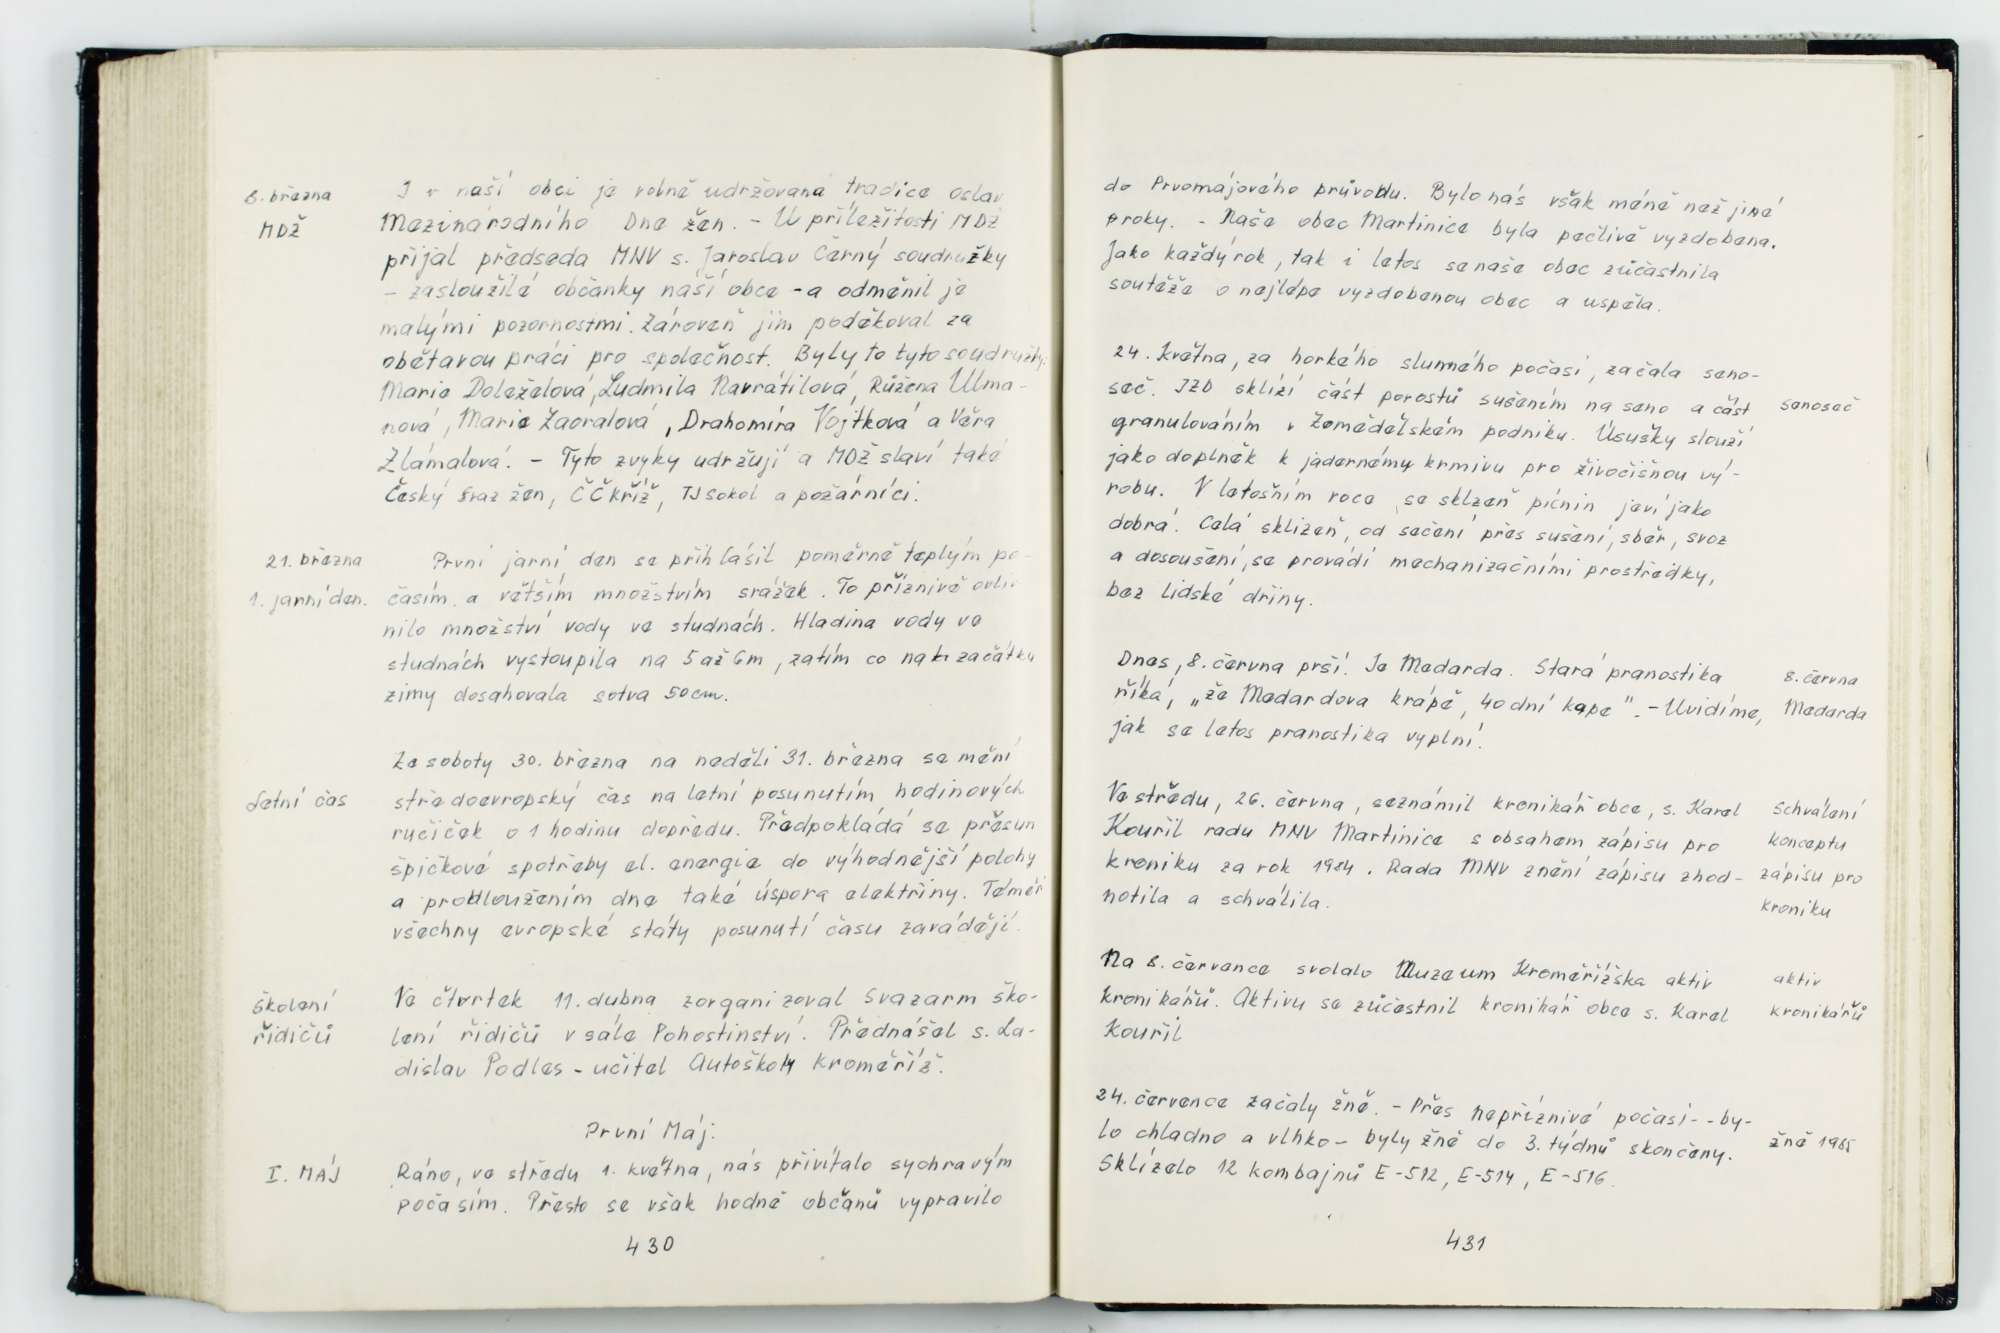 8. března
MDŽ
I v naší obci je volně udržovaná tradice oslav
Mezinárodního Dne žen. - U příležitosti MDŽ
přijal předseda MNV s. Jaroslav Černý soudružky
- zasloužilé občanky naší obce - a odměnil je
malými pozornostmi. Zároveň jim poděkoval za
obětavou práci pro společnost. Byly to tyto soudružky:
Marie Doleželová, Ludmila Navrátilová, Růžena Ulma-
nová, Marie Zaoralová, Drahomíra Vojtková a Věra
Zlámalová. - Tyto zvyky udržují a MDŽ slaví také
Český svaz žen, ČČkříž, TJ sokol a požárníci.
21. března
1. jarní den.
První jarní den se přihlásil poměrně teplým po-
časím a větším množstvím srážek. To příznivě ovliv-
nilo množství vody ve studnách. Hladina vody ve
studnách vystoupila na 5 až 6m, zatím co na začátku
zimy dosahovala sotva 50 cm.
Letní čas
Ze soboty 30. března na neděli 31. března se mění
středoevropský čas na letní posunutím hodinových
ručiček o 1 hodinu dopředu. Předpokládá se přesun
špičkové spotřeby el. energie do výhodnější polohy
a prodloužením dne také úspora elektřiny. Téměř
všechny evropské státy posunutí času zavádějí.
Školení
řidičů
Ve čtvrtek 11. dubna zorganizoval Svazarm ško-
lení řidičů v sále Pohostinství. Přednášel s. La-
dislav Podles - učitel Autoškoly Kroměříž.
První Máj:
I. MÁJ
Ráno, ve středu 1. května, nás přivítalo sychravým
počasím. Přesto se však hodně občanů vypravilo
430
do Prvomájového průvodu. Bylo nás však méně než jiné
proky. - Naše obec Martinice byla pečlivě vyzdobena.
Jako každý rok, tak i letos se naše obec zúčastnila
soutěže o nejlépe vyzdobenou obec a uspěla.
24. Května, za horkého slunného počasí, začala seno-
seč. JZD sklízí část porostů sušením na seno a část
granulováním v Zemědělském podniku. Úsušky slouží
jako doplněk k jadernému krmivu pro živočišnou vý-
robu. V letošním roce se sklzeň pícnin jeví jako
dobrá. Celá sklizeň, od sečení přes sušení, sběr, svoz
a dosoušení, se provádí mechanizačními prostředky,
bez lidské dřiny.
senoseč
Dnes, 8. června prší. Je Medarda. Stará pranostika
říká, „že Medardova krápě, 40 dní kape". - Uvidíme,
jak se letos pranostika vyplní.
8. června
Medarda
Ve středu, 26. června, seznámil kronikář obce, s. Karel
Kouřil radu MNV Martinice s obsahem zápisu pro
kroniku za rok 1984. Rada MNV znění zápisu zhod-
notila a schválila.
Schválení
konceptu
zápisu pro
kroniku
Na 8. července svolalo Muzeum Kroměřížska aktiv
kronikářů. Aktivu se zúčestnil kronikář obce s. Karel
Kouřil
aktiv
kronikářů
24. července začaly žně. - Přes nepříznivé počasí - - by-
lo chladno a vlhko - byly žně do 3. týdnů skončeny.
Sklízelo 12 kombajnů E-512, E-514, E-516.
žně 1985
431